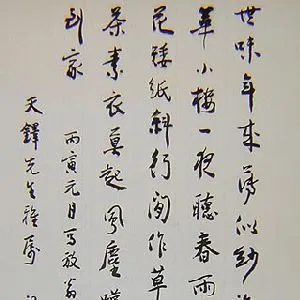 世味年來薄似紗
華小樓一夜聽春雨
花矮紙斜行閒作草
茶素衣莫起風塵嘆
到家
丙寅元日寫放翁
天鐸先生雅屬